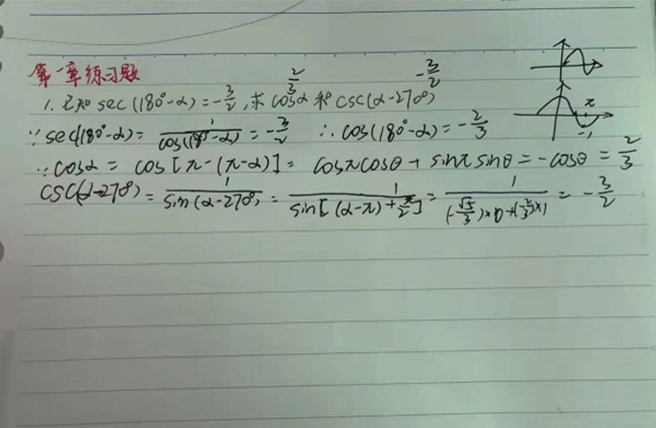 第一章练习题
2/3 -3/2
1. 已知 sec(180°-α)=-3/2, 求 cosα 和 csc(α-270°)
∵ sec(180°-α)= 1/cos(180°-α) = -3/2 ∴ cos(180°-α)= -2/3
∵ cosα = cos[π-(π-α)]= cosπcosθ + sinπsinθ = -cosθ = 2/3
csc(α-270°)= 1/sin(α-270°) = 1/sin[(α-π)+π/2] = 1/(-√5/3)×0+(-2/3)×1 = -3/2
π
-1